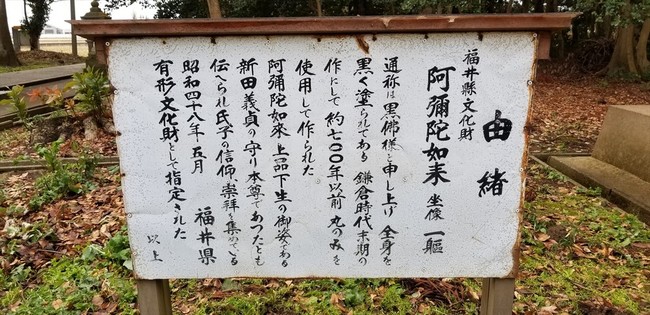 由緒
福井縣文化財
阿彌陀如来 坐像 一軀
通称は黒佛様と申し上げ 全身を
黒く塗られてある 鎌倉時代末期の
作にして 約七〇〇年以前 丸のみを
使用して作られた
阿彌陀如来 上品下生の御姿である
新田義貞の守り本尊であつたとも
伝へられ氏子の信仰、崇拜を集めている
昭和四十八年五月 福井県
有形文化財として指定された
以上